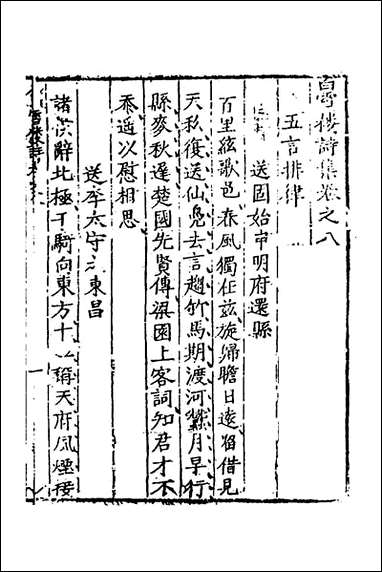 白雪樓詩集卷之八
五言排律
送固始申明府還縣
百里絃歌邑春風獨在茲旋歸瞻日遠留借見
天私復送仙鳧去言趨竹馬期渡河蠶月早行
縣麥秋遲楚國先賢傳梁園上客詞知君才不
忝遥以慰相思
送卒太守之東昌
諸侯辭北極千騎向東方十二稱天府風煙接
一